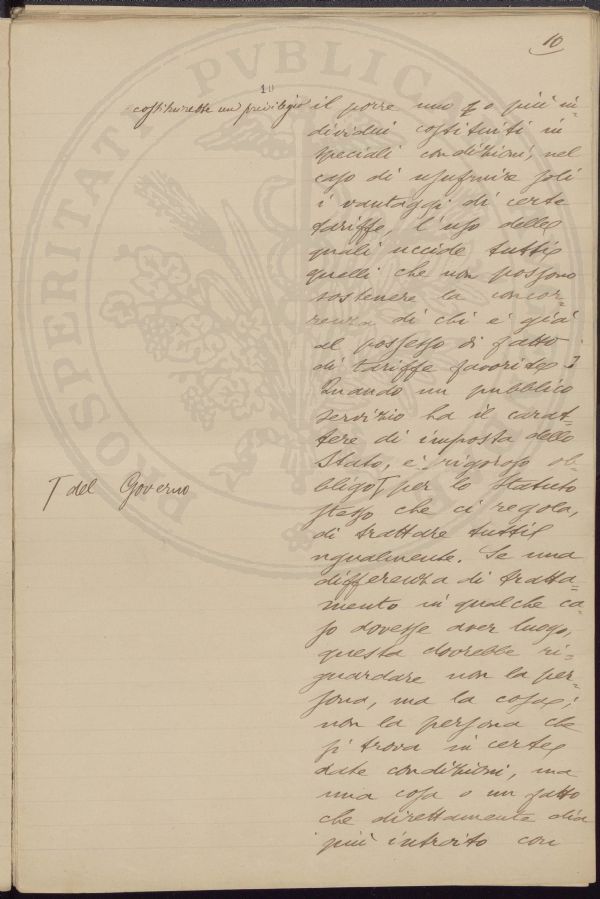 10
10
costituirebbe un privilegio il porre uno o più in-
dividui costituiti in
speciali condizioni, nel
caso di usufruire soli
i vantaggi di certe
tariffe, l'uso delle
quali uccide tutti
quelli che non possono
sostenere la concor=
renza di chi è già
al possesso di fatto
di tariffe favorite?
Quando un pubblico
servizio ha il carat=
tere di imposta dello
Stato, è rigoroso ob-
bligo⌈ per lo Statuto
⌈ del Governo
stesso che ci regola,
di trattare tutti
ugualmente. Se una
differenza di tratta=
mento in qualche ca=
so dovesse aver luogo,
questa dovrebbe ri=
guardare non la per=
sona, ma la cosa;
non la persona che
si trova in certe
date condizioni, ma
una cosa o un fatto
che direttamente dia
più introito con
PROSPERITATI PVBLICAE